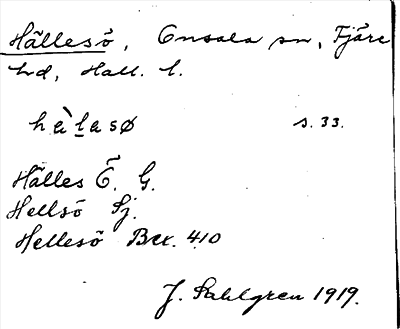 Hällesö, Onsala sn, Fjäre
hd, Hall. l.
hàlasø s. 33.
Hälles Ö. G.
Hellsö Sj.
Hellesö Bex. 410
J. Sahlgren 1919.